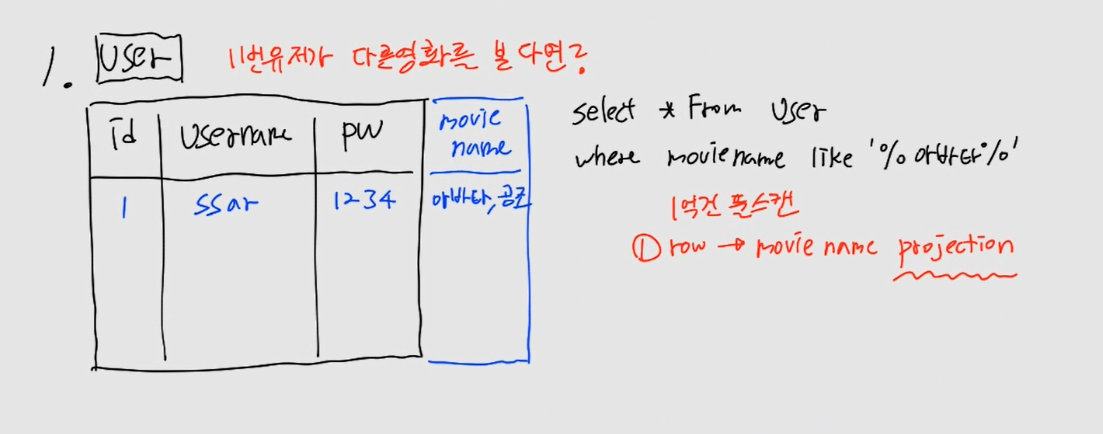 1. User 1번유저가 다른영화를 본다면?
id username pw movie name
1 ssar 1234 아바타, 공조
select * From User
where moviename like '%아바타%'
1억건 풀스캔
① row → movie name projection